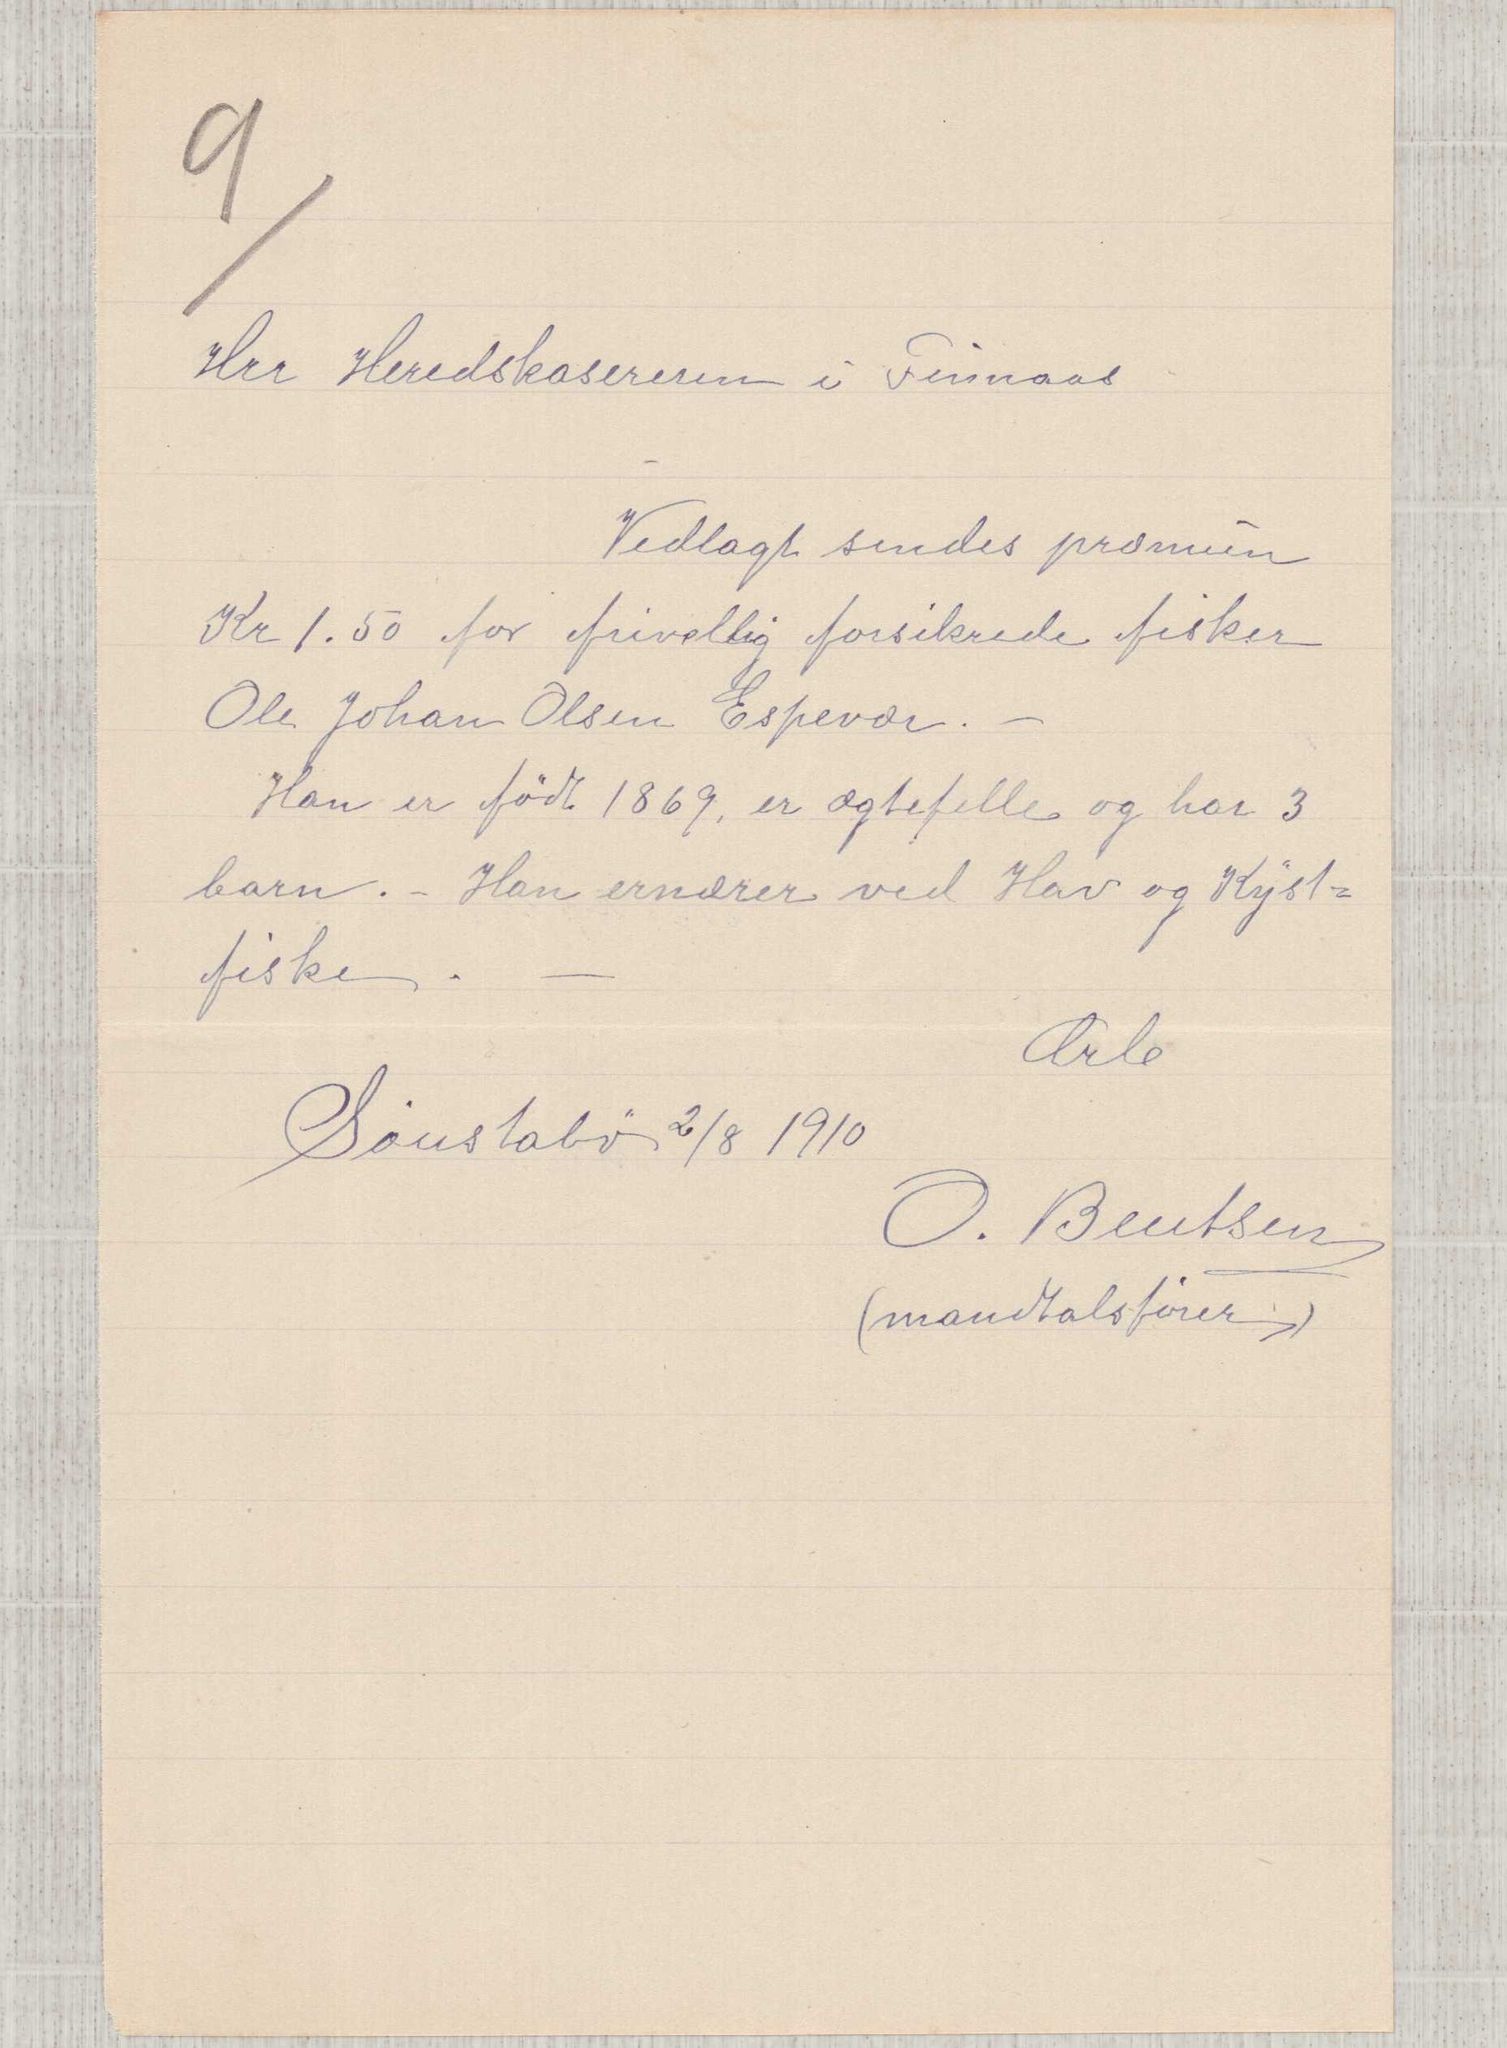 9/
Hrr Heredskasereren i Finnaas
Vedlagt sendes præmien
Kr 1.50 for frivellig forsikrede fisker
Ole Johan Olsen Espevær. —
Han er født 1869, er ægtefelle og har 3
barn. – Han ernærer ved Hav og Kyst=
fiske. —
Ærb
Sønstabø 2/8 1910
O. Bentsen
(mandtalsfører)